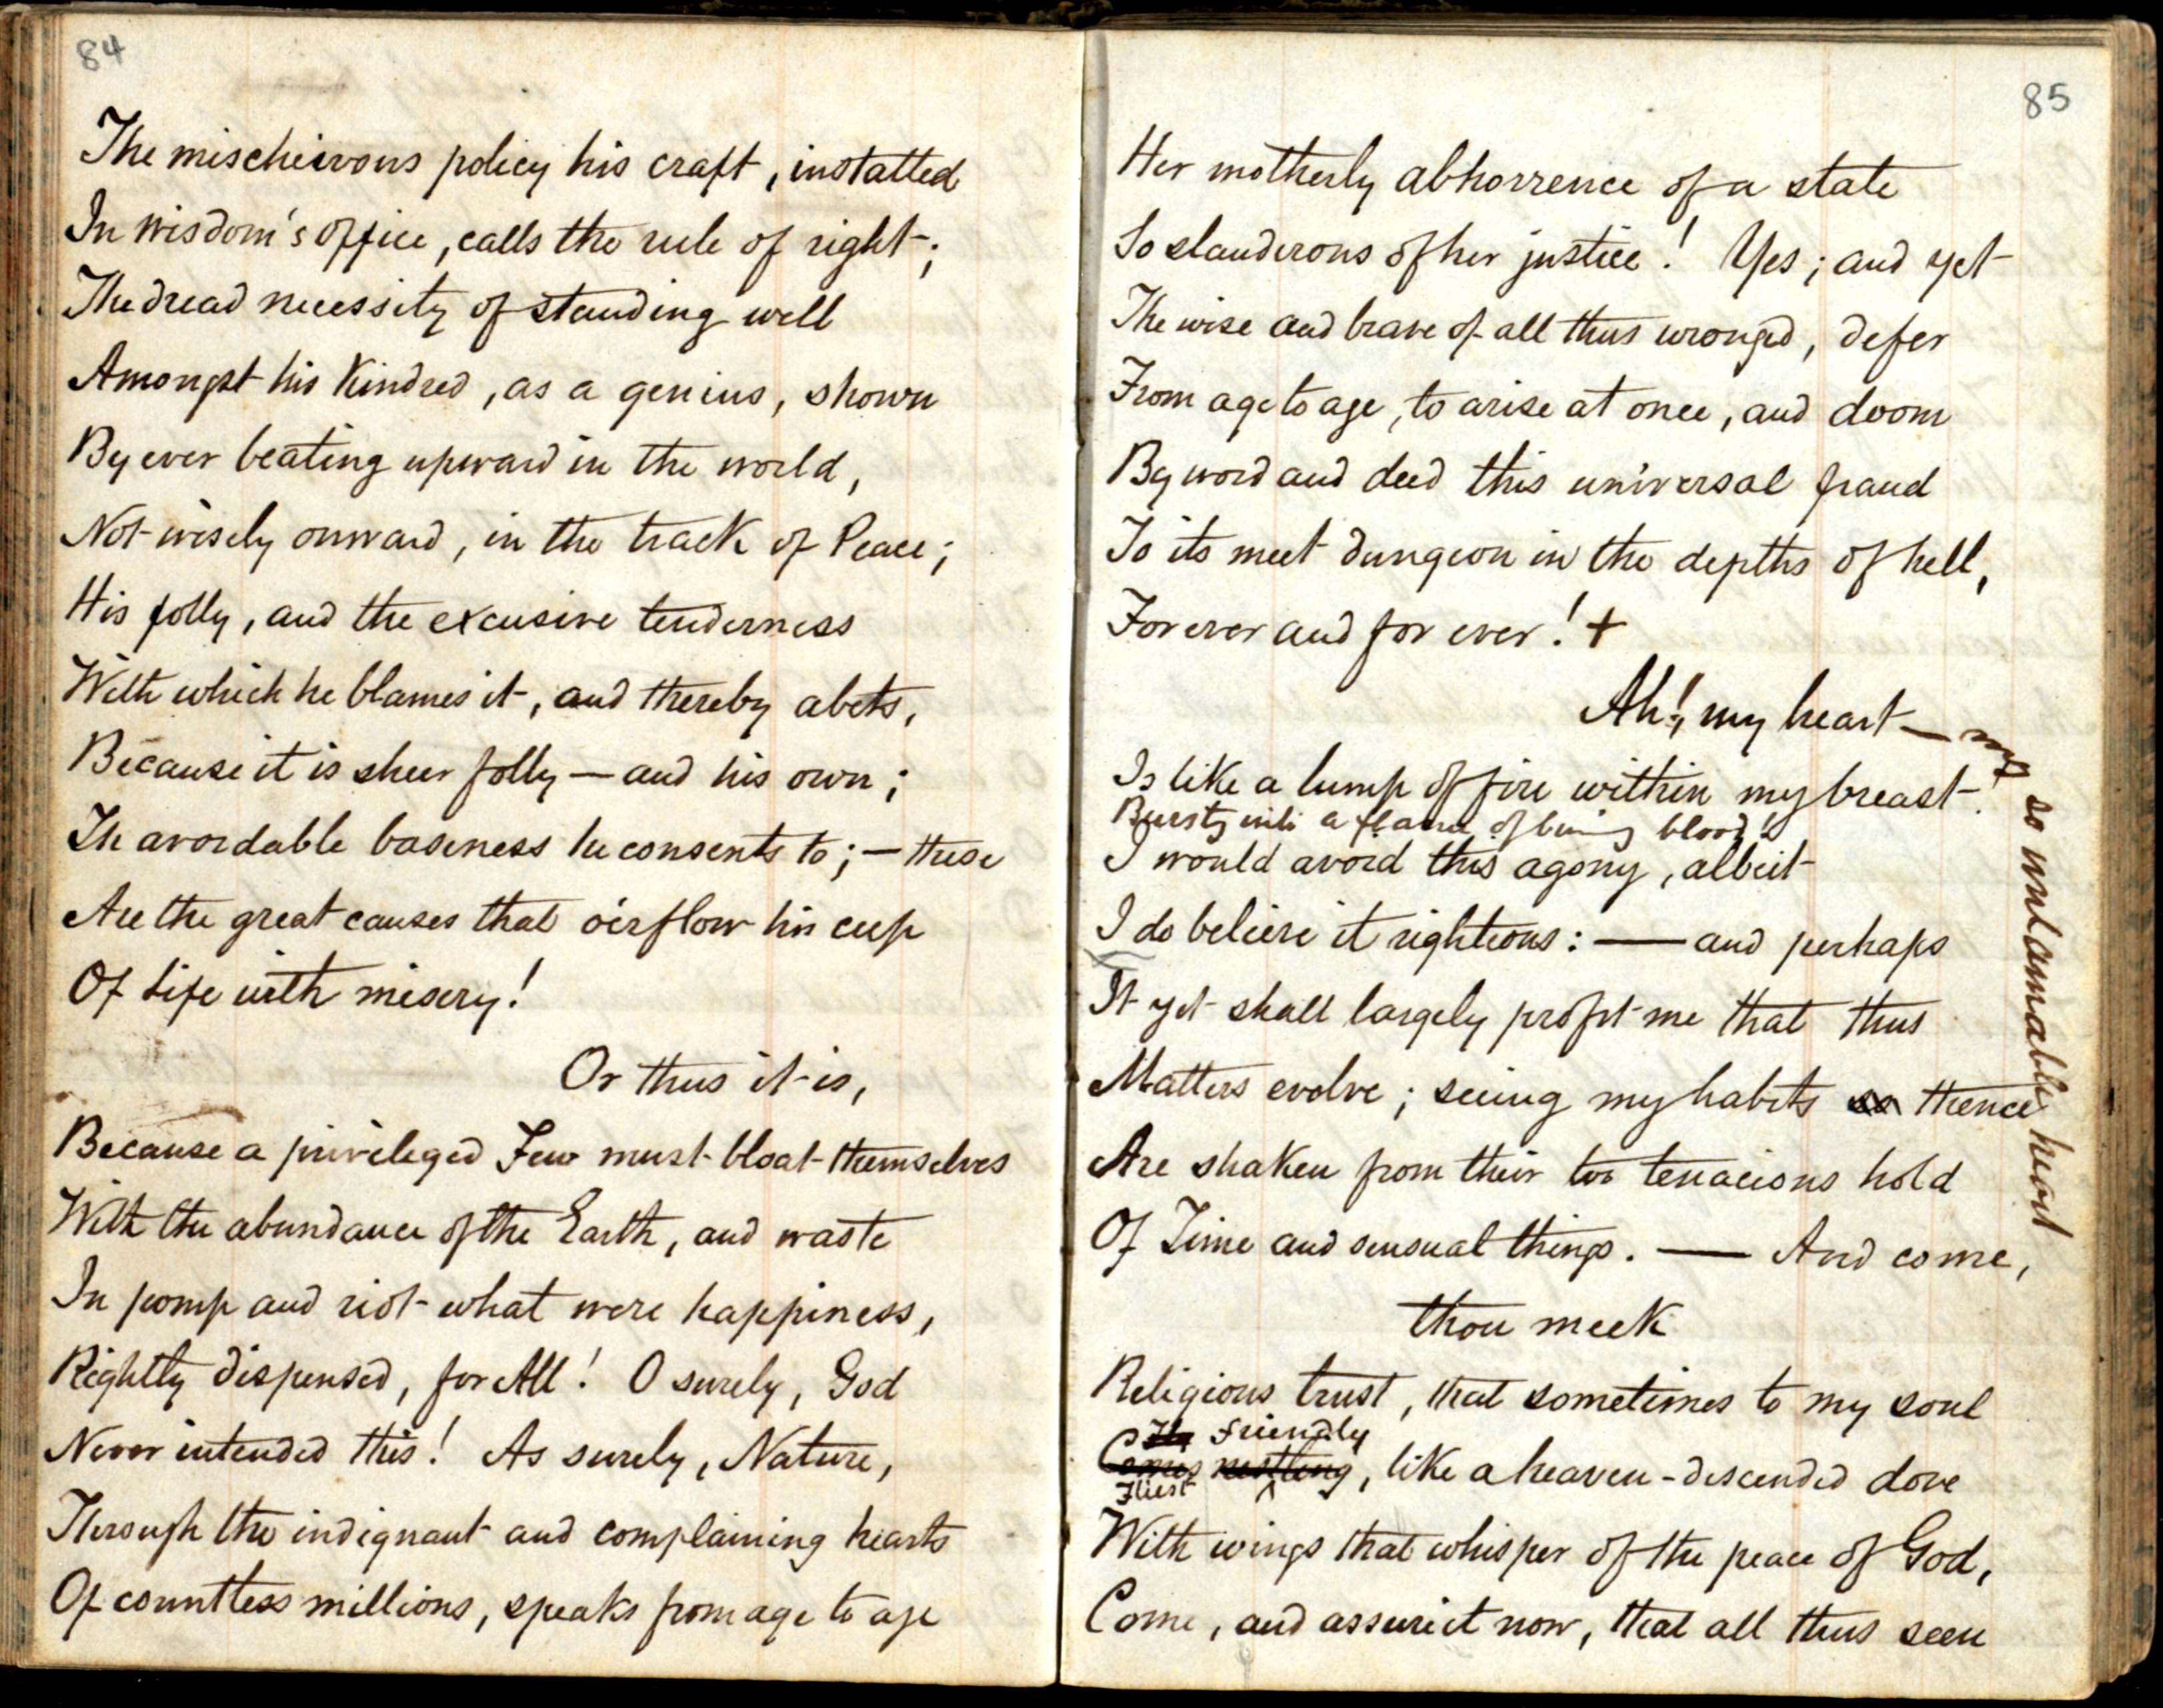 84
The mischeivous policy his craft, installed
In wisdom's office, calls the rule of right;
The dread necessity of standing well
Amongst his kindred, as a genius, shown
By ever beating upward in the world,
Not wisely onward, in the track of Peace;
His folly, and the excusive tenderness
With which he blames it, and thereby abets,
Because it is sheer folly — and his own;
Th avoidable baseness he consents to; — these
Are the great causes that o'erflow his cup
Of Life with misery!
Or thus it is,
Because a privileged Few must bloat themselves
With the abundance of the Earth, and waste
In pomp and riot what were happiness,
Rightly dispensed, for All! O surely, God
Never intended this! As surely, Nature,
Through the indignant and complaining hearts
Of countless millions, speaks from age to age
85
Her motherly abhorrence of a state
So slanderous of her justice! Yes; and yet
The wise and brave of all thus wronged, defer
From age to age, to arise at once, and doom
By word and deed this universal fraud
To its meet dungeon in the depths of hell,
For ever and for ever! +
Ah! my heart — my so untameable heart
Is like a lump of fire within my breast!
Bursts into a flame of burning blood!
I would avoid this agony, albeit
I do believe it righteous: — and perhaps
It yet shall largely profit me that thus
Matters evolve; seeing my habits thence
Are shaken from their too tenacious hold
Of Time and sensual things. — And come,
thou meek
Religious trust, that sometimes to my soul
Friendly
Comes nestling, like a heaven-descended dove
Fliest
With wings that whisper of the peace of God,
Come, and assure it now, that all thus seen